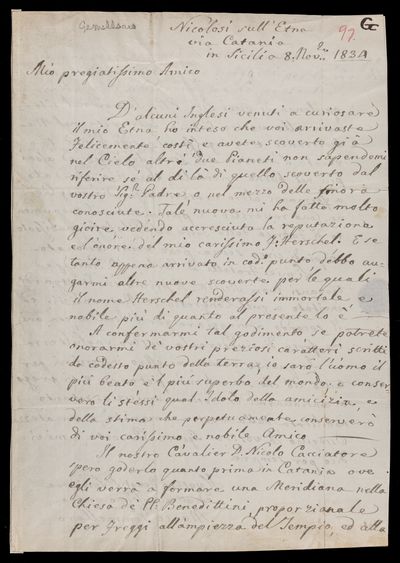 Gemellaro
97.
Nicolosi sull'Etna
via Catania
in Sicilia 8. Nov.e 1834
Mio pregiatissimo Amico
D'alcuni Inglesi venuti a curiosare
il mio Etna ho inteso che voi arrivaste
felicemente costì e avete scoverto già
nel Cielo altri due pianeti non sapendomi
riferire sé al di là di quello scoverto dal
vostro Sig.r Padre o nel mezzo delle finora
conosciute. Tale nuova mi ha fatto molto
gioire vedendo accresciuta la reputazione
e l'onore del mio carissimo J: Herschel. E se
tanto appena arrivato in cod.o punto debbo au-
garmi altre nuove scoverte per le quali
il nome Herschel renderassi immortale e
nobile più di quanto al presente lo è.
A confermarmi tal godimento se potrete
onorarmi de' vostri preziosi caratteri scritti
da codesto punto della terra, io sarò l'uomo il
più beato e 'l più superbo del mondo, e conser
verò li stessi qual Idolo della amicizia, e
della stima che perpetuamente conserverà
di voi carissimo e nobile Amico
Il nostro Cavalier D. Nicolo Cacciatore
spero goderlo quanto prima in Catania ove
egli verrà a formare una Meridiana nella
Chiesa de' PP. Benedittini proporzionale
per freggi all'ampiezza del Tempio, ed alla